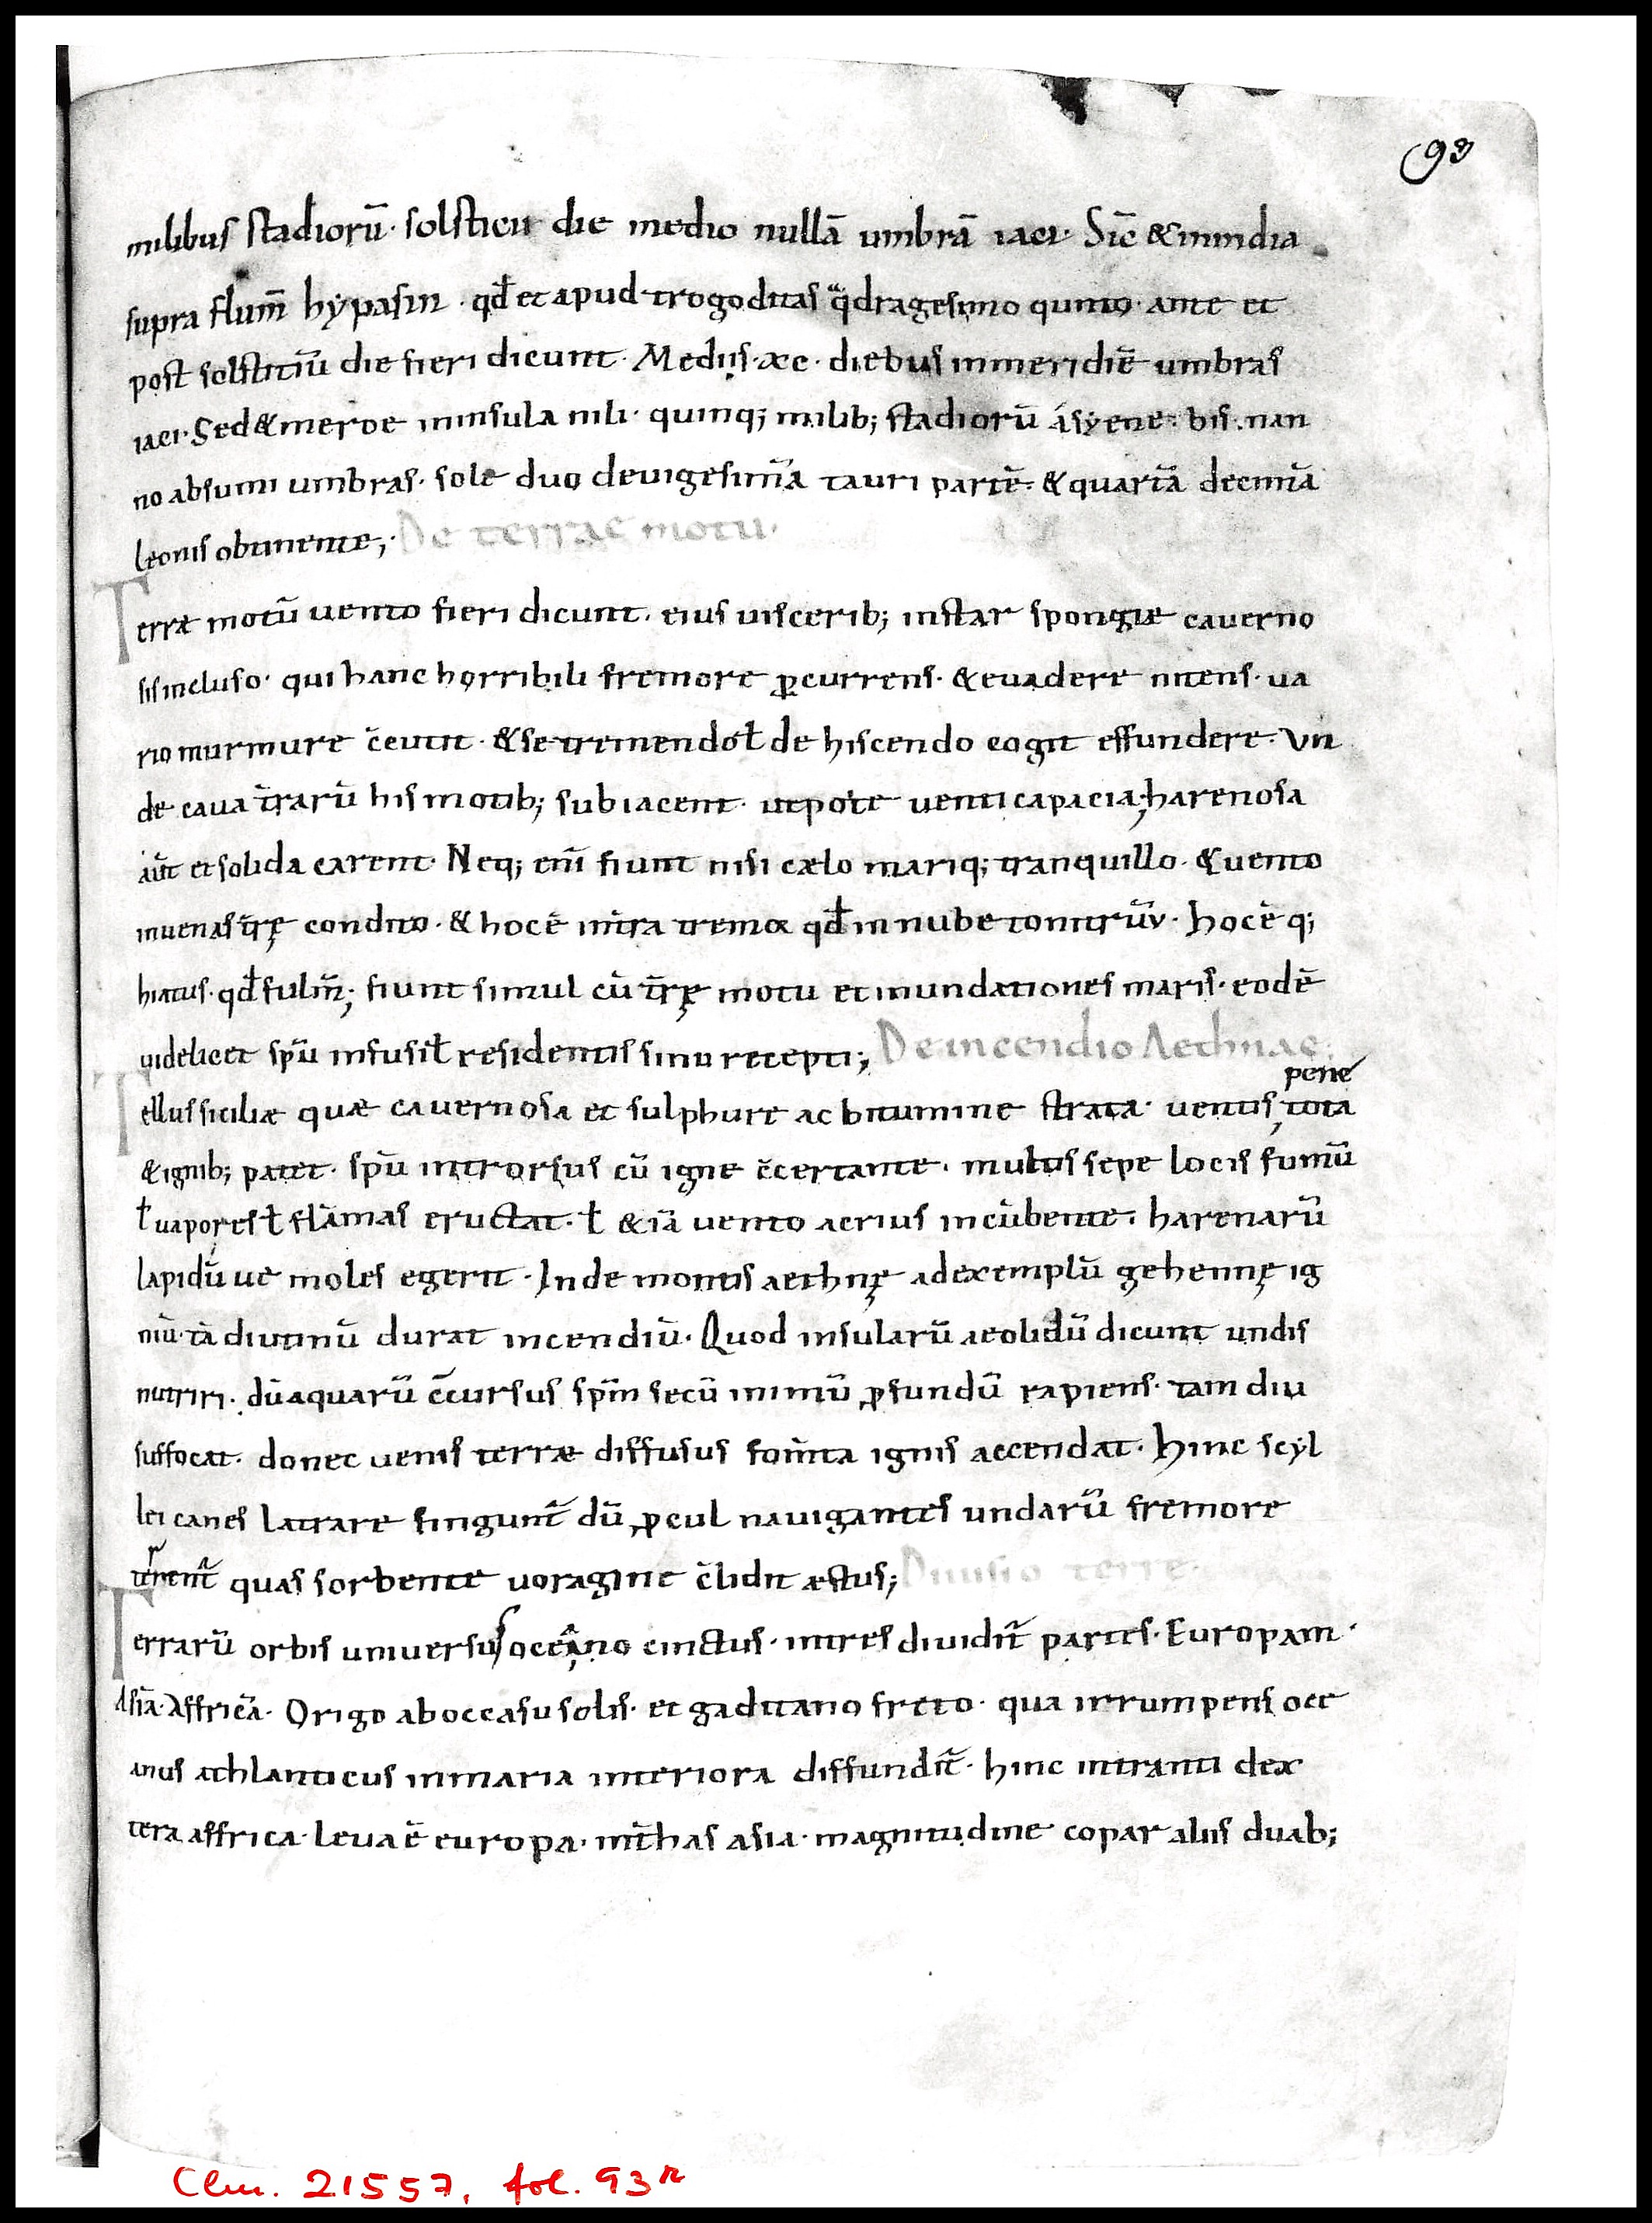 93
milibus stadiorū· solsticii die medio nullā umbrā iaci· Sic̄ & in india
supra flum̄ hẏpasin · qđ et apud trogoditas qͣdragesimo quinto· ante et
post solstitiū die fieri dicunt· Mediis· xc· diebus in meridiē umbras
iaci· Sed & meroe in insula nili· quinq; milib; stadiorū á sẏene· bis in an
no absumi umbras· sole duo deuigesimā tauri partē· & quartā decimā
leonis obtinente;· De terrae motu·
Terrae motū uento fieri dicunt· eius uiscerib; instar spongiae cauerno
sis incluso· qui hanc horribili fremore ꝑcurrens· & euadere nitens· ua
rio murmure c̄cutit· & se tremendo ł de hiscendo cogit effundere· Vn
de caua t̄rarū his motib; subiacent· utpote uenti capacia; harenosa
aūt et solida carent· Neq; eni̅ fiunt nisi caelo mariq; tranquillo· & uento
in uenas t̄rę condito· & hoc ē in t̄ra tremor qđ in nube tonitrūu· hoc ē q;
hiatus· qđ fulm̄; fiunt simul cū t̄rę motu et inundationes maris· eodē
uidelicet sp̄u infusi ł residentis sinu recepti; De incendio Aethnae;
Tellus siciliae quae cauernosa et sulphure ac bitumine strata· uentis, tota
pene
& ignib; patet· sp̄u introrsus cū igne c̄certante· multis sepe locis fumū
ł uapores ł flāmas eructat· ł & iā uento acrius incūbente· harenarū
lapidū ue moles egerit· Inde montis aethnę ad exemplū gehennę ig
niū· tā diutinū durat incendiū· Quod insularū aeolidū dicunt undis
nutriri· dū aquarū c̄cursus sp̄m secū in imū ꝓfundū rapiens· tam diu
suffocat· donec uenis terrae diffusus fom̄ta ignis accendat· hinc scẏl
lei canes latrare fingunt̄ dū ꝓcul nauigantes undarū fremore
terrent̄ quas sorbente uoragine c̄lidit aestus; Diuisio terre·
Terrarū orbis uniuersus oceano cinctus· in tres diuidit̄ partes· Europam·
Asiā· Affricā· Origo ab occasu solis· et gaditano freto· qua irrumpens oce
anus athlanticus in maria interiora diffundit̄· hinc intranti dex
tera affrica· leua ē europa· int̄ has asia· magnitudine copar aliis duab;
Clm. 21557, fol. 93r